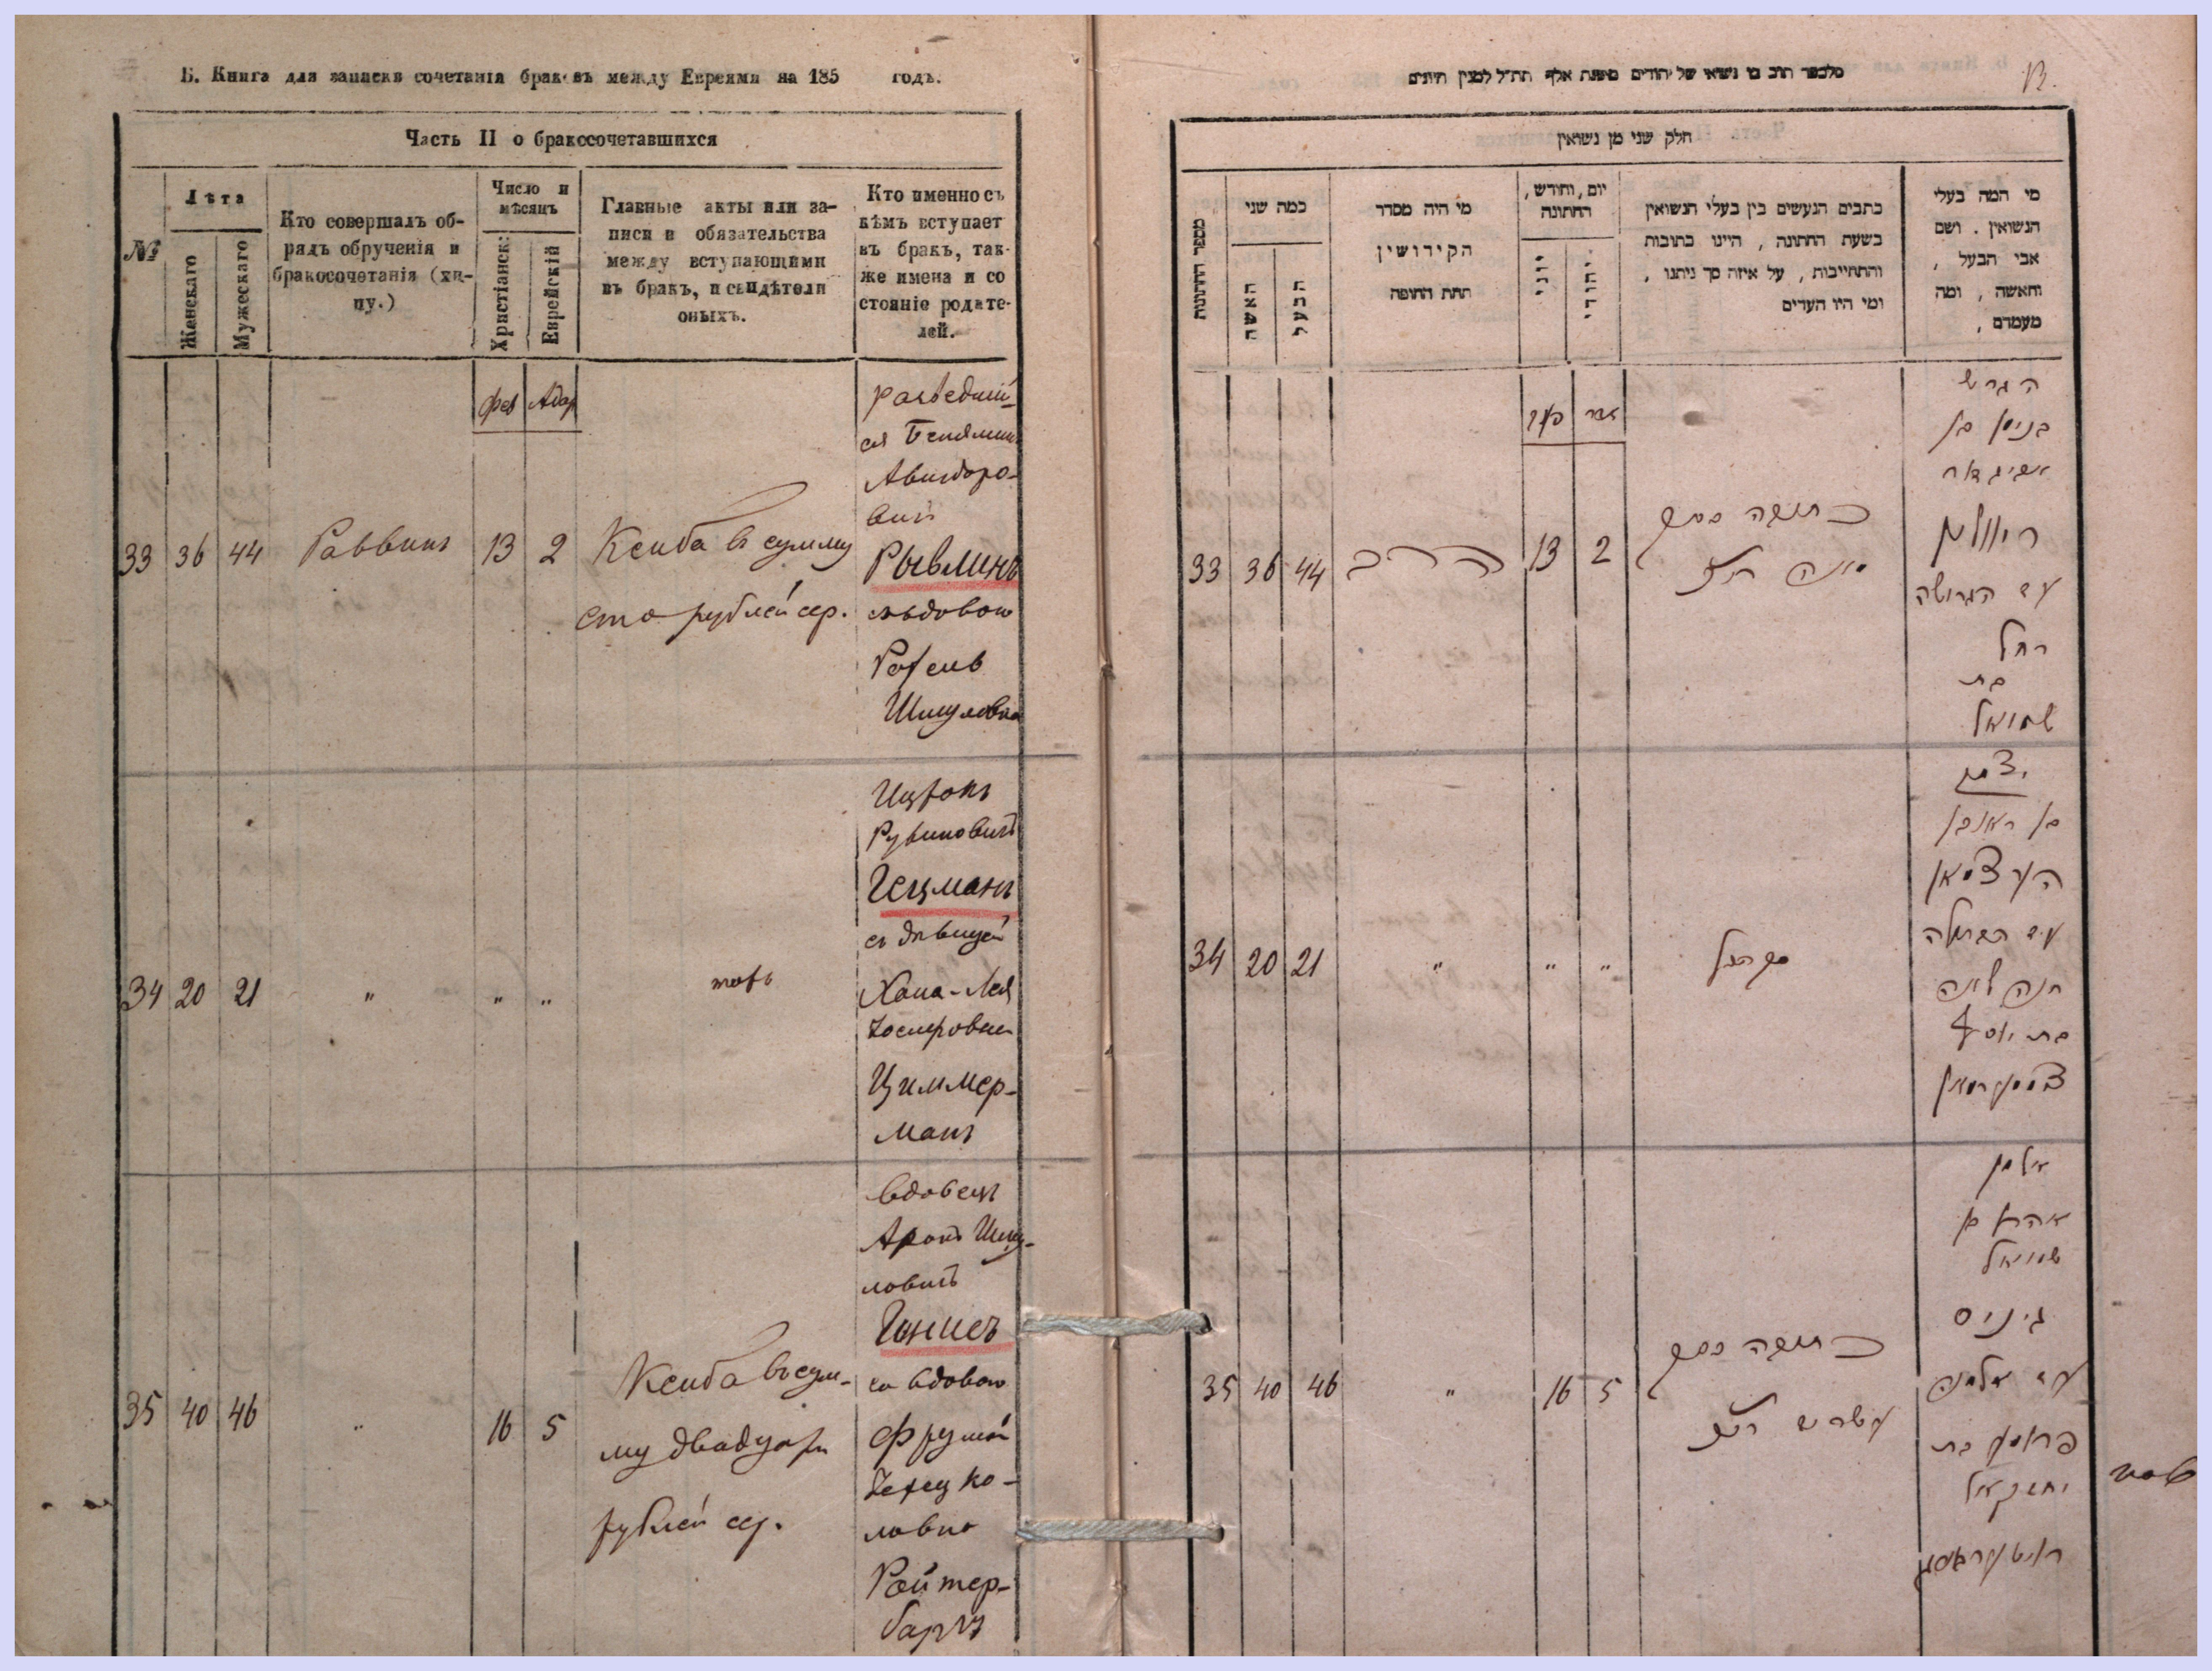 Б. Книга для записки сочетанія браковъ между Евреями на 185 годъ.
Часть II о бракосочетавшихся
№
Лѣта
Женскаго
Мужескаго
Кто совершалъ об-
рядъ обрученія и
бракосочетанія (хи-
пу.)
Число и
мѣсяцъ
Христіанск:
Еврейскій
Главные акты или за-
писи и обязательства
между вступающими
въ бракъ, и свидѣтели
оныхъ.
Кто именно съ
кѣмъ вступает
въ бракъ, так-
же имена и со
стояніе родате-
лей.
Фев Адар
33 36 44 Раввинъ 13 2
Ксиба въ сумму
сто рублей сер.
Авигдоро-
вич
Рывлинъ
съ вдовою
Рохель
Шмуловна
34 20 21 " " "
тожъ
Ицхокъ
Рувиновичъ
Гецманъ
съ дѣвицей
Хана-Лея
Іосифовна
Циммер-
манъ
35 40 46 " 16 5
Ксиба въ сум-
му двадцати
рублей сер.
вдовецъ
Аронъ Шму-
ловичъ
Гинисъ
со вдовою
Фрумой
Іехецко-
ловна
Ройтер-
баргъ
13.
חלק שני מן נשואין
מספר החתונות
כמה שני
האשה
הבעל
מי היה מסדר
הקידושין
תחת החופה
יום, וחודש,
החתונה
יוני
יהודי
כתבים הנעשים בין בעלי הנשואין
בשעת החתונה, היינו כתובות
והתחייבות, על איזה סך ניתנו,
ומי היו העדים
מי המה בעלי
הנשואין. ושם
אבי הבעל,
והאשה, ומה
מעמדם,
אדר
33 36 44 הרב 13 2
כתובה בסך
מאה
הגרש
בנימן בן
אביגדור
ריוולין
עם הגרושה
רחל
בת
שמואל
34 20 21 " " "
יצחק
בן ראובן
העצמאן
עם הבתולה
חנה לאה
בת יוסף
צימערמאן
35 40 46 " 16 5
כתובה בסך
עשרים
אלמן
אהרן בן
שמואל
גיניס
עם אלמנה
פרומע בת
יחזקאל
רויטערבארג